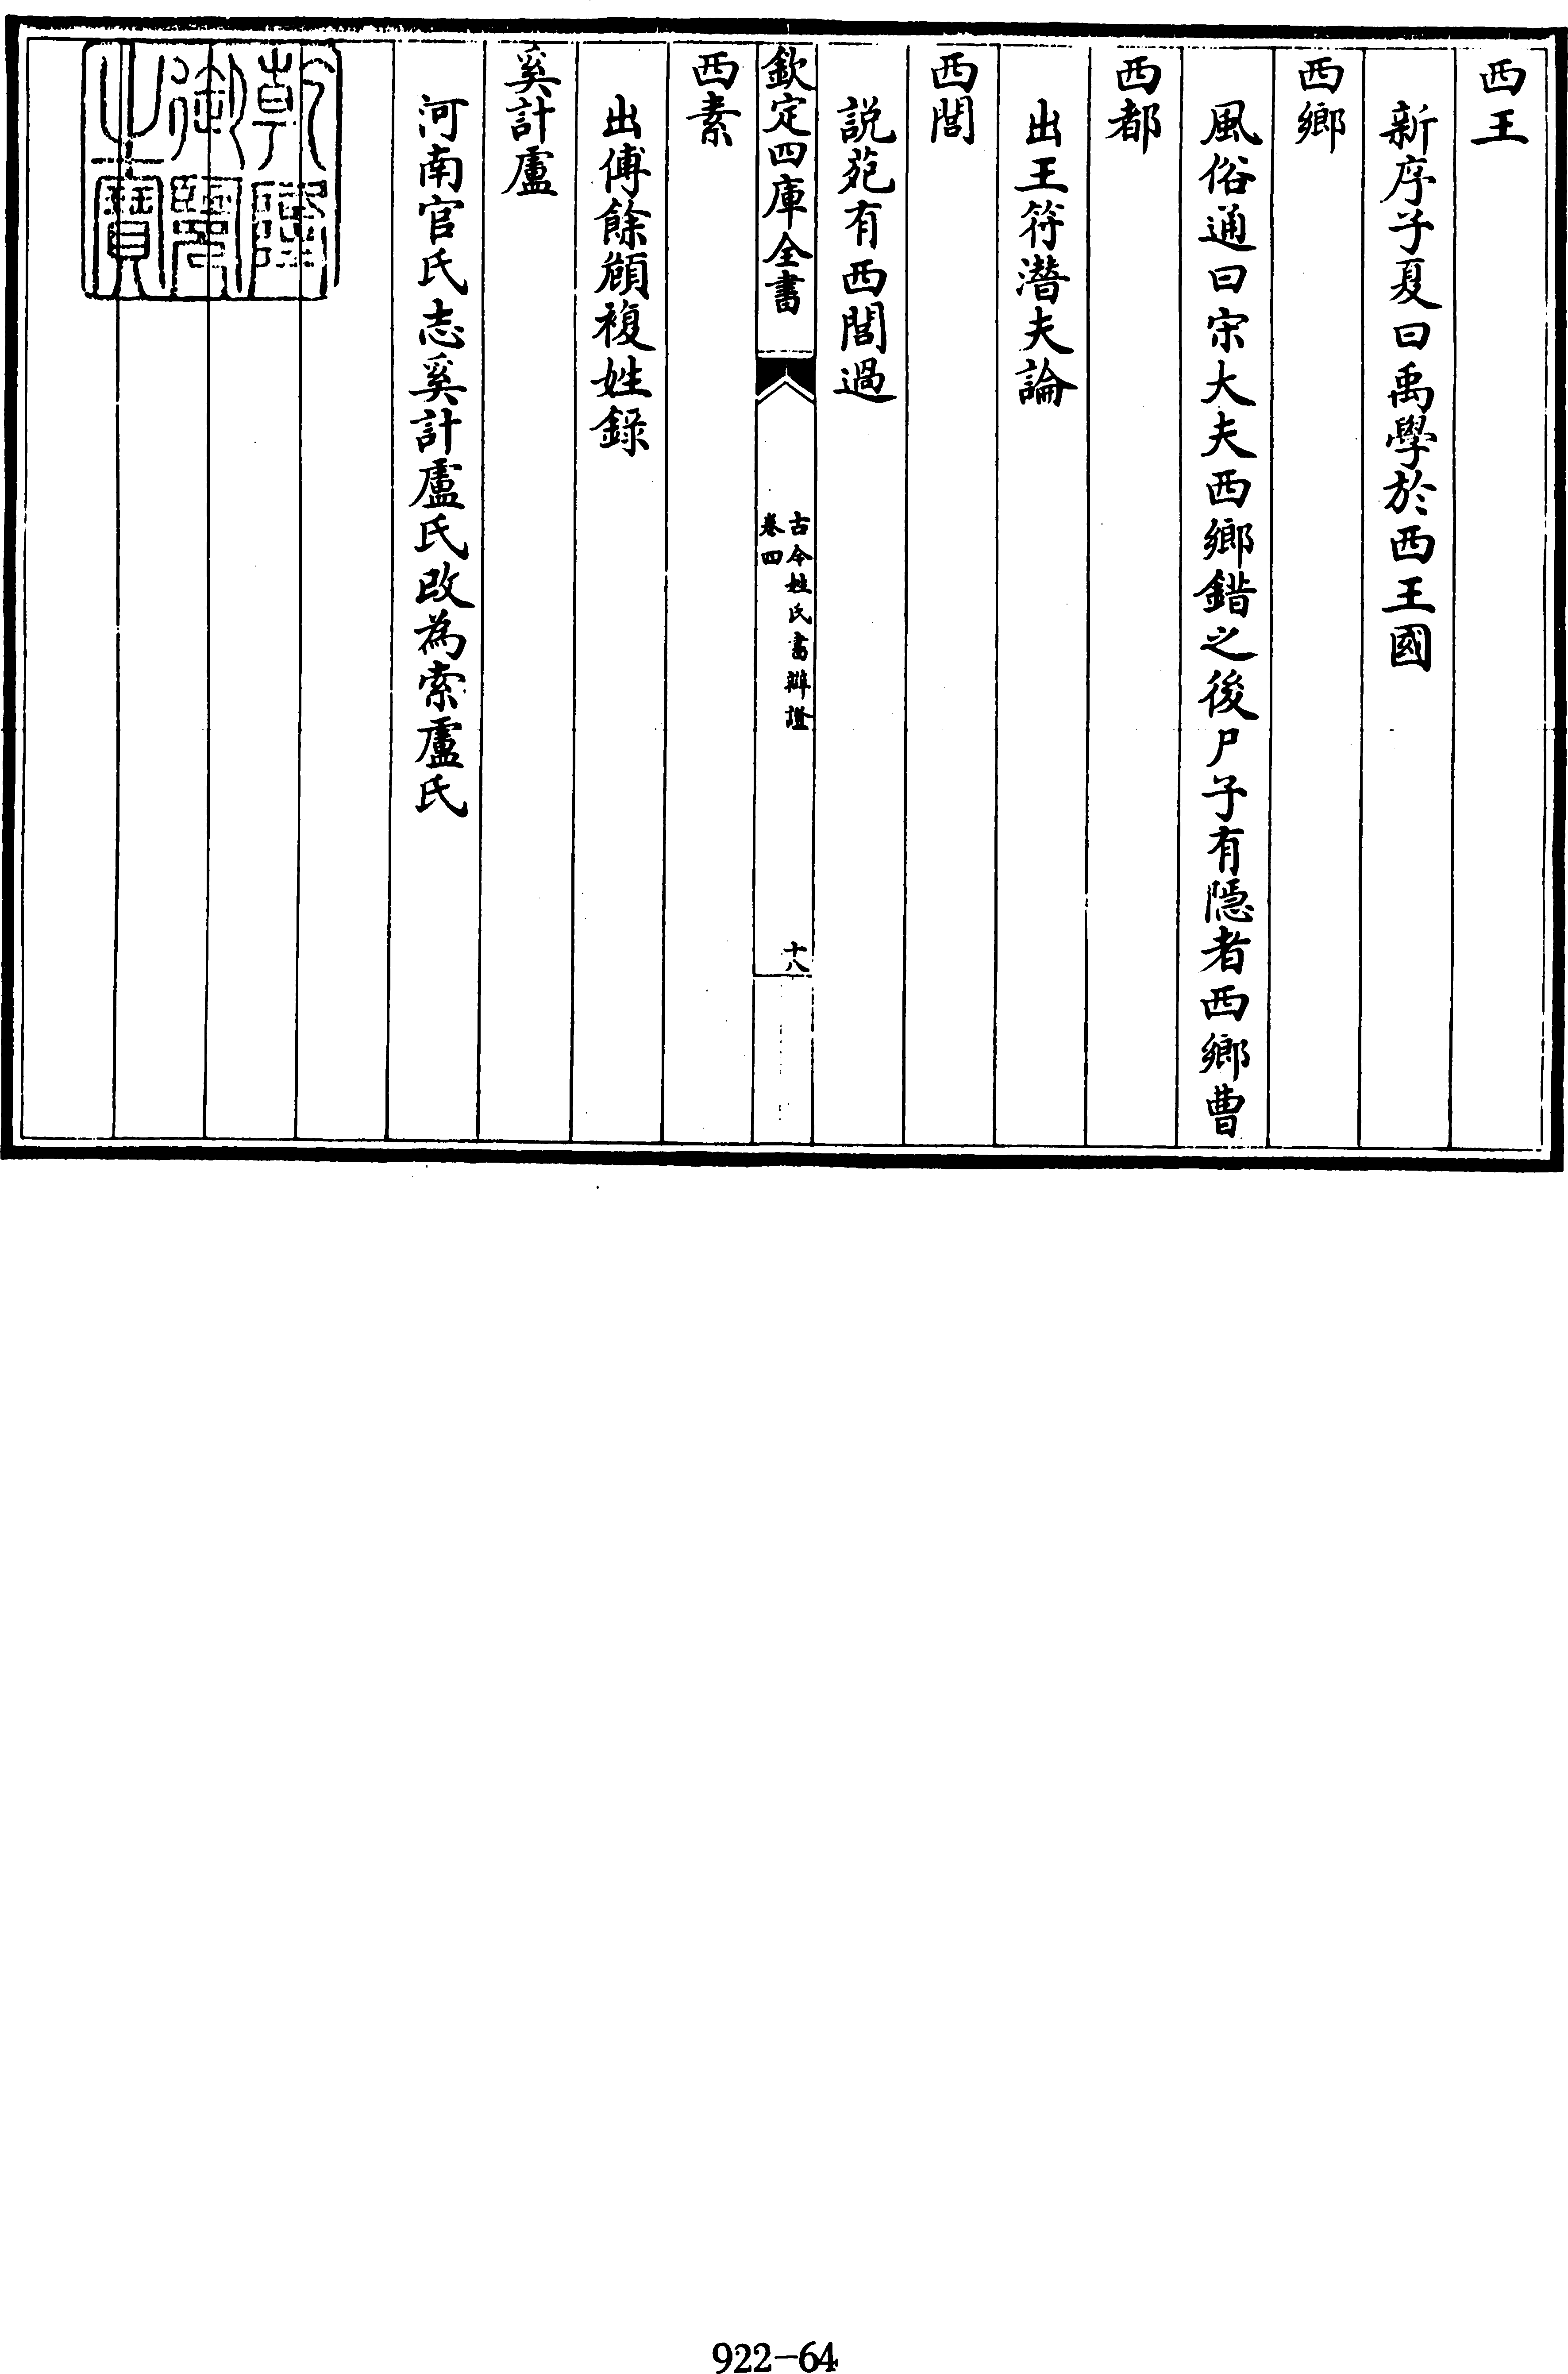 西王
新序子夏曰禹學於西王國
西鄉
風俗通曰宋大夫西鄉錯之後尸子有隠者西鄉曹
西都
出王符潛夫論
西閭
説苑有西閭過
欽定四庫全書
古今姓氏書辯證
卷四
十八
西素
出傅餘頠複姓錄
奚計盧
河南官氏志奚計盧氏改為索盧氏
乾隆
御覽
之寶
922-64